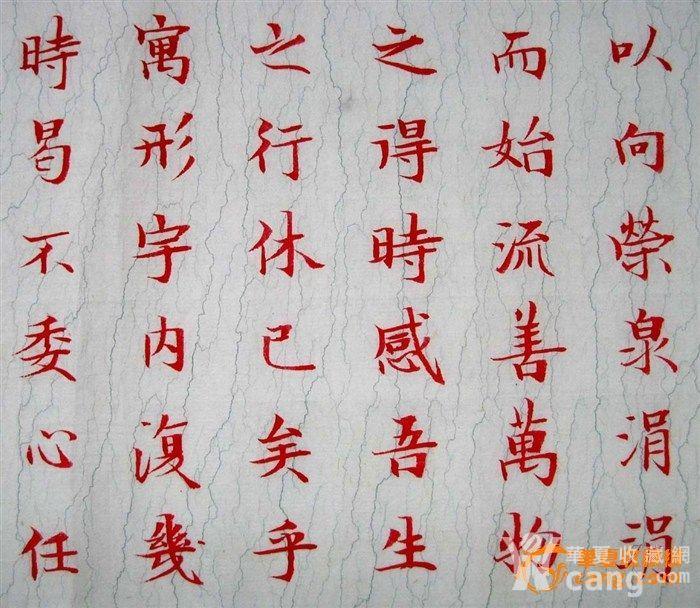 以向榮泉涓涓
而始流善萬物
之得時感吾生
之行休已矣乎
寓形宇内復幾
時曷不委心任
華夏收藏網
cang.com